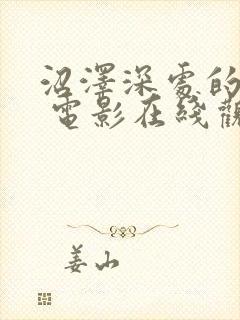 沼澤深處的
電影在綫觀
姜山